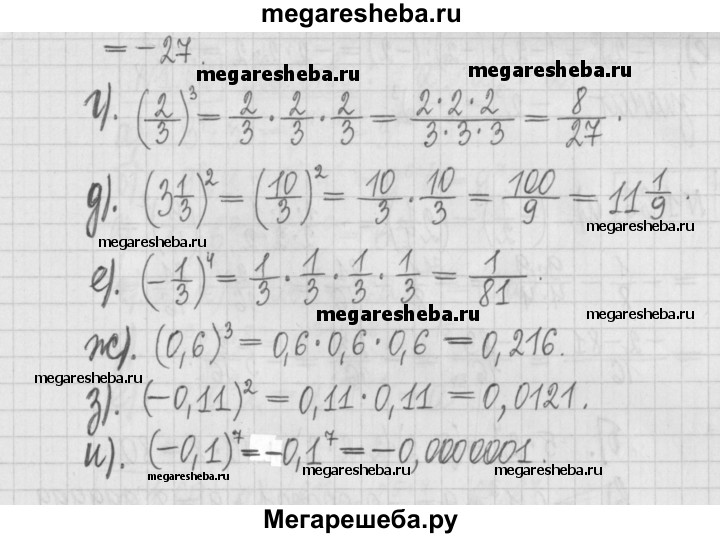 megaresheba.ru
= -27.
megaresheba.ru megaresheba.ru
г). (2/3)³ = 2/3 · 2/3 · 2/3 = 2·2·2/3·3·3 = 8/27.
д). (3 1/3)² = (10/3)² = 10/3 · 10/3 = 100/9 = 11 1/9.
megaresheba.ru megaresheba.ru
е). (-1/3)⁴ = 1/3 · 1/3 · 1/3 · 1/3 = 1/81.
megaresheba.ru megaresheba.ru
ж). (0,6)³ = 0,6·0,6·0,6 = 0,216.
megaresheba.ru megaresheba.ru
з). (-0,11)² = 0,11·0,11 = 0,0121.
и). (-0,1)⁷ = -0,1⁷ = -0,0000001.
megaresheba.ru megaresheba.ru
Мегарешеба.ру